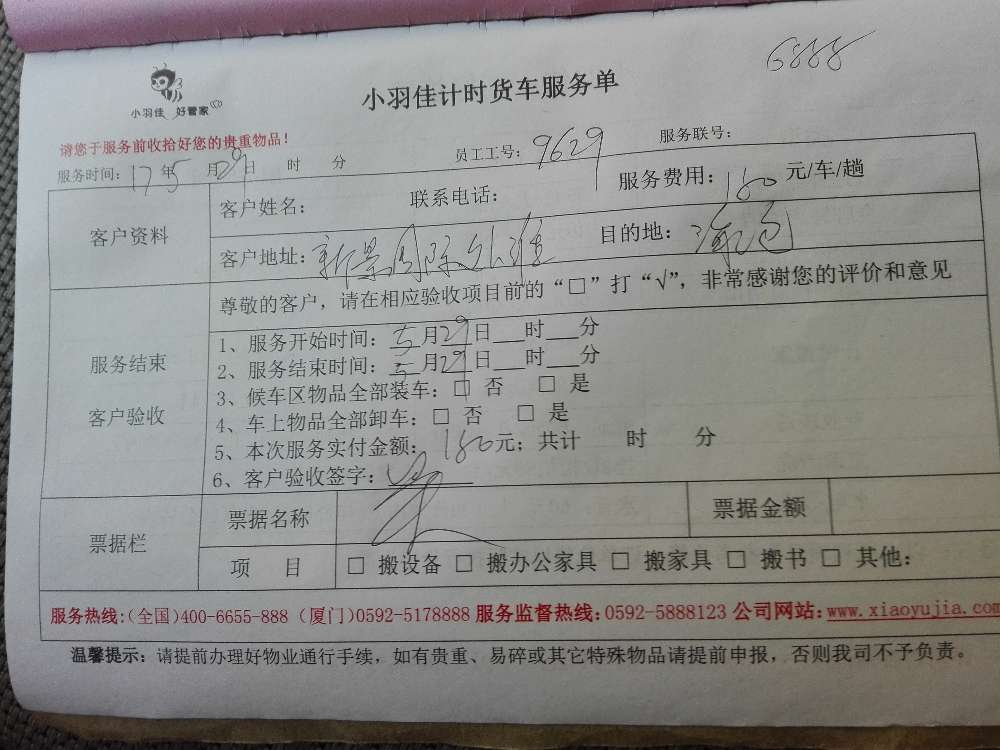 6888
小羽佳 好管家
小羽佳计时货车服务单
请您于服务前收拾好您的贵重物品！
服务时间：17年5月29日 时 分 员工工号：9629 服务联号：
客户资料
客户姓名： 联系电话： 服务费用：180元/车/趟
客户地址：新景国际外滩 目的地：
尊敬的客户，请在相应验收项目前的“□”打“√”，非常感谢您的评价和意见
服务结束
客户验收
1、服务开始时间：5月29日__时__分
2、服务结束时间：5月29日__时__分
3、候车区物品全部装车：□ 否 □ 是
4、车上物品全部卸车：□ 否 □ 是
5、本次服务实付金额：180元；共计 时 分
6、客户验收签字：
票据栏
票据名称 票据金额
项 目 □ 搬设备 □ 搬办公家具 □ 搬家具 □ 搬书 □ 其他：
服务热线：(全国)400-6655-888 (厦门)0592-5178888 服务监督热线：0592-5888123 公司网站：www.xiaoyujia.com
温馨提示：请提前办理好物业通行手续，如有贵重、易碎或其它特殊物品请提前申报，否则我司不予负责。